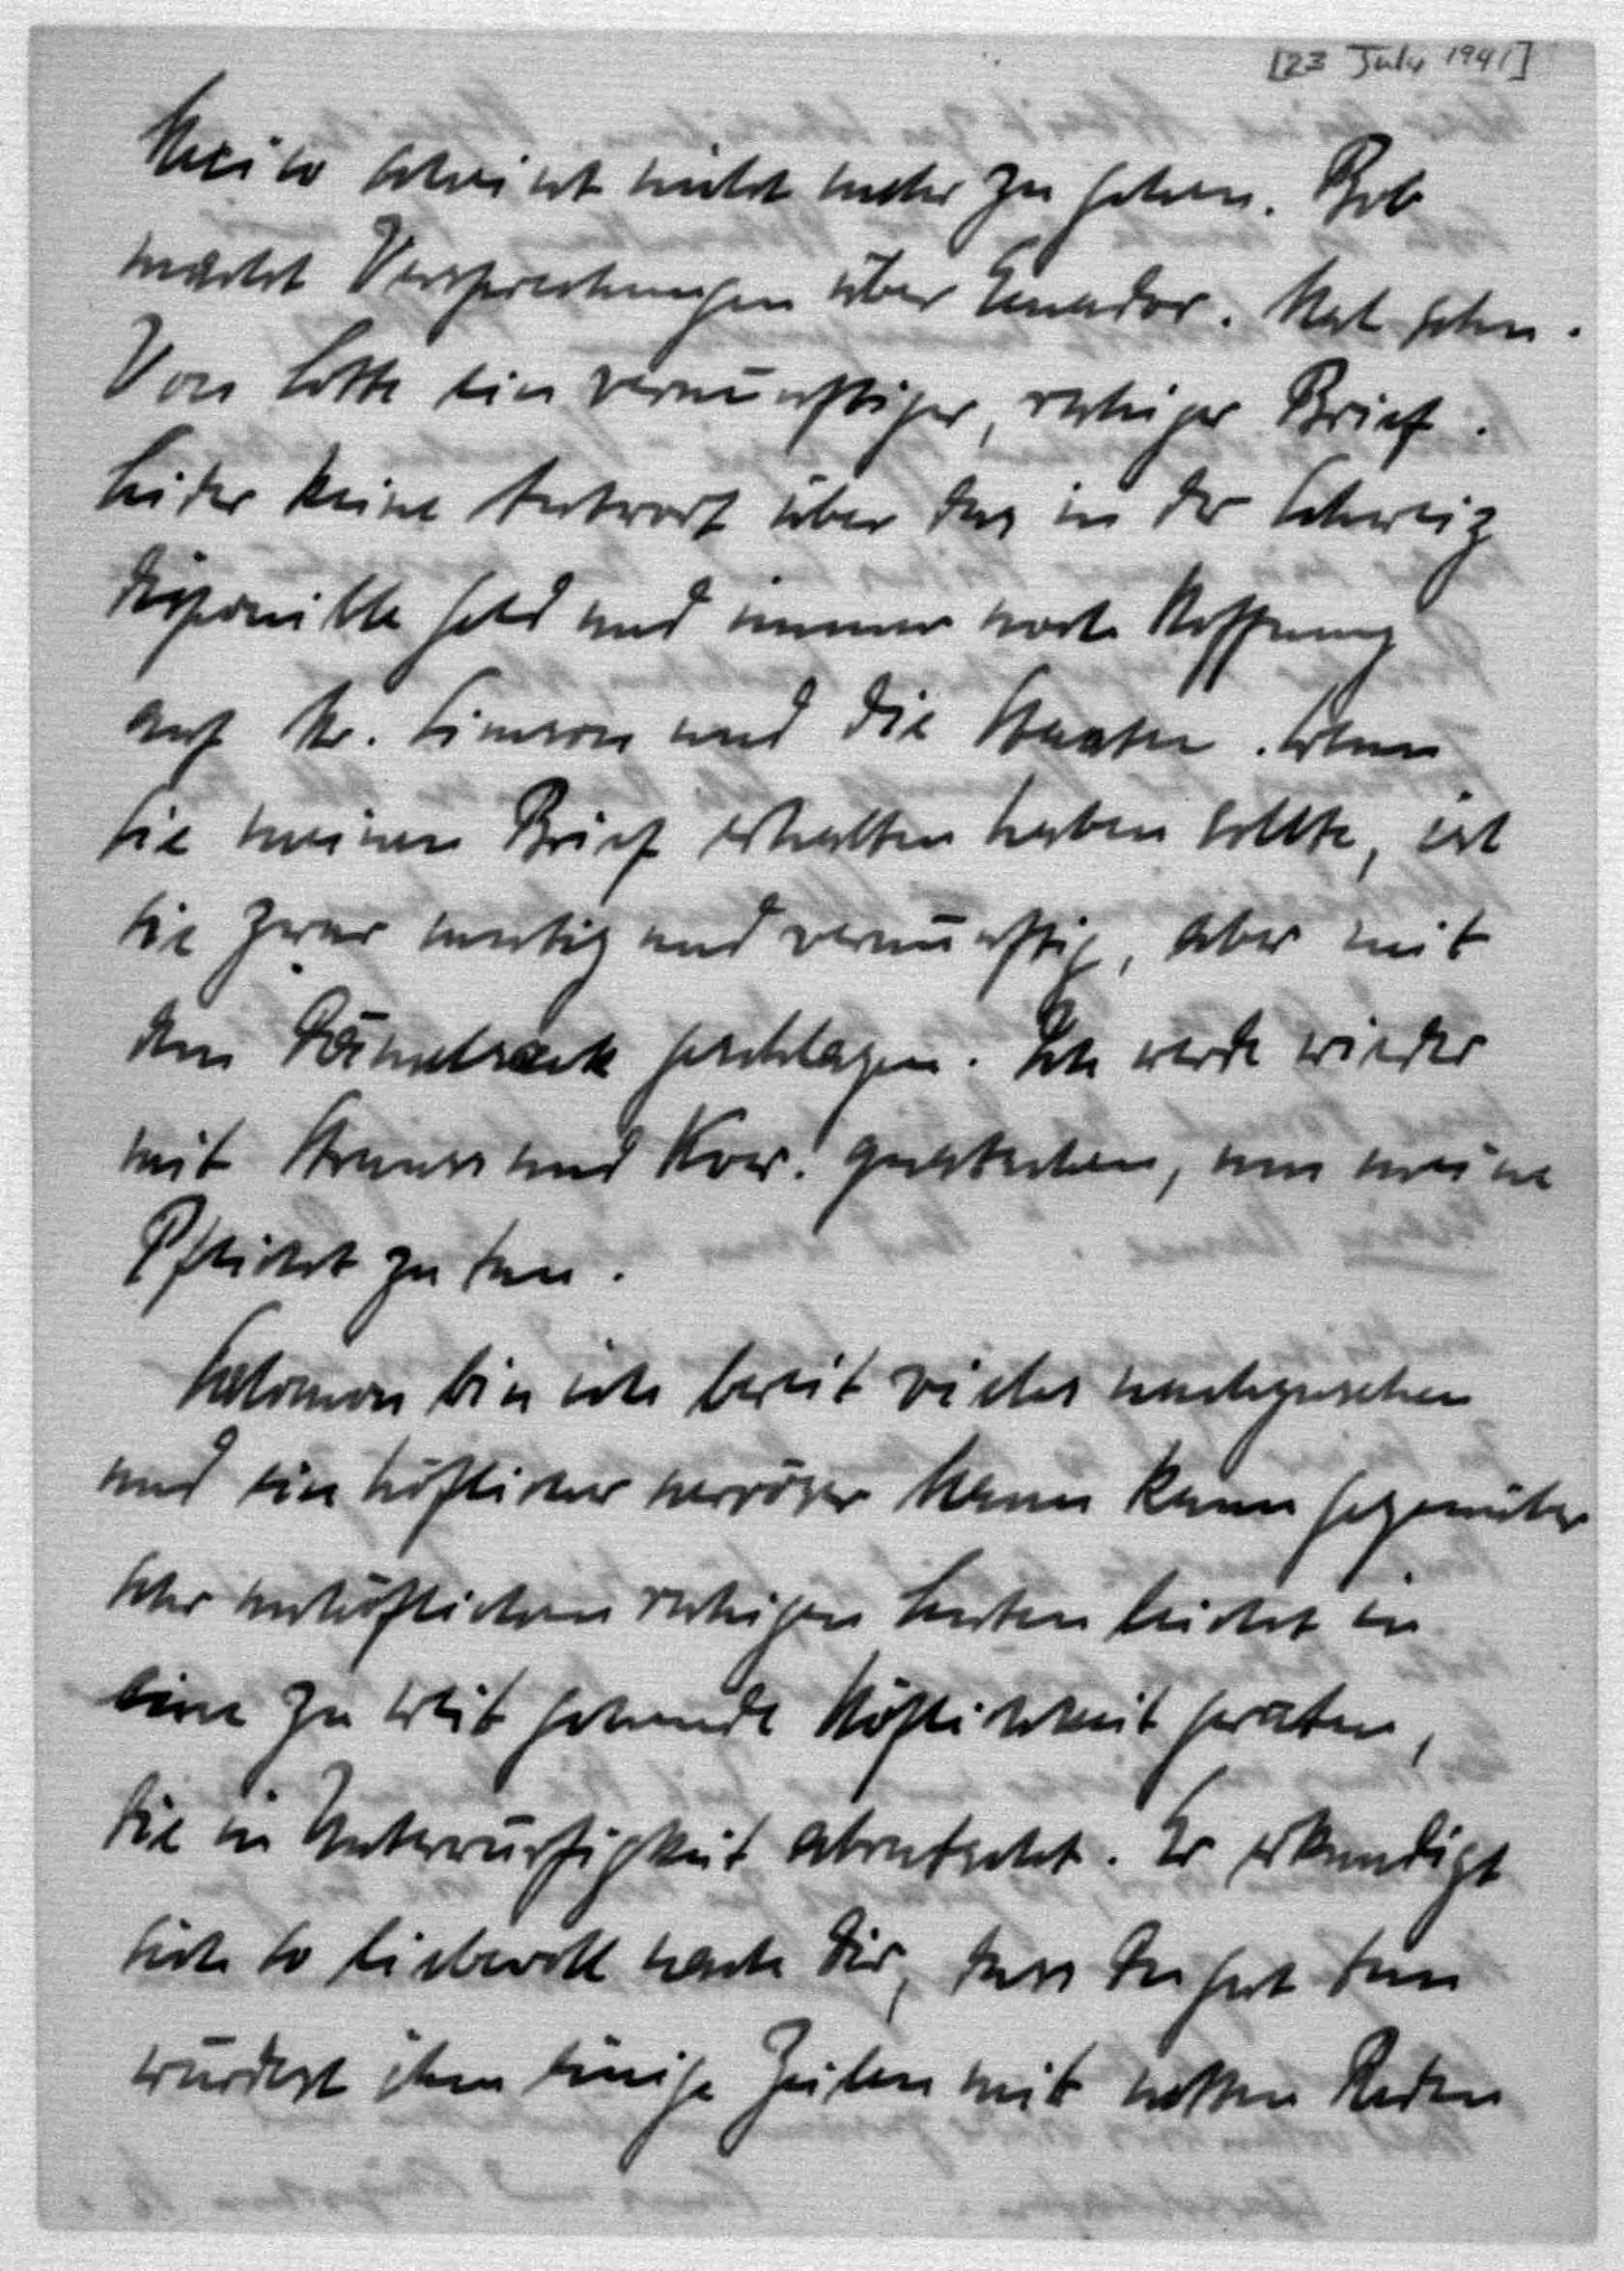 [23 July 1941]
Mexico scheint nicht mehr zu gehen. Bob
macht Versprechungen über Ecuador. Mal sehn.
Von Lotte ein vernünftiger, ruhiger Brief.
Leider keine Antwort über das in der Schweiz
disponible Geld und immer noch Hoffnung
auf Mr. Simson und die Staaten. Wenn
sie meinen Brief erhalten haben sollte, ist
sie zwar mutig und vernünftig, aber mit
dem Dämelsack geschlagen. Ich werde wieder
mit Strauss und Kow. quatschen, um meine
Pflicht zu tun.
Salomon bin ich bereit vieles nachzusehen
und ein höflicher nervöser Mann kann gegenüber
sehr unhöflichen ruhigen Leuten leicht in
eine zu weit gehende Höflichkeit geraten,
die in Unterwürfigkeit abrutscht. Er erkundigt
sich so liebevoll nach Dir, dass Du gut tun
würdest ihm einige Zeilen mit netten Reden